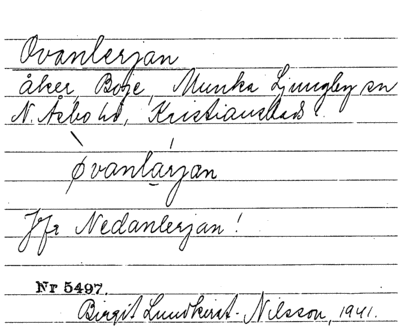 Ovanlerjan
åker, Boje, Munka Ljungby sn
N. Åsbo hd, Kristianstads l.
òvanlárjan
Jfr Nedanlerjan!
Nr 5497.
Birgit Lundkvist-Nilsson, 1941.